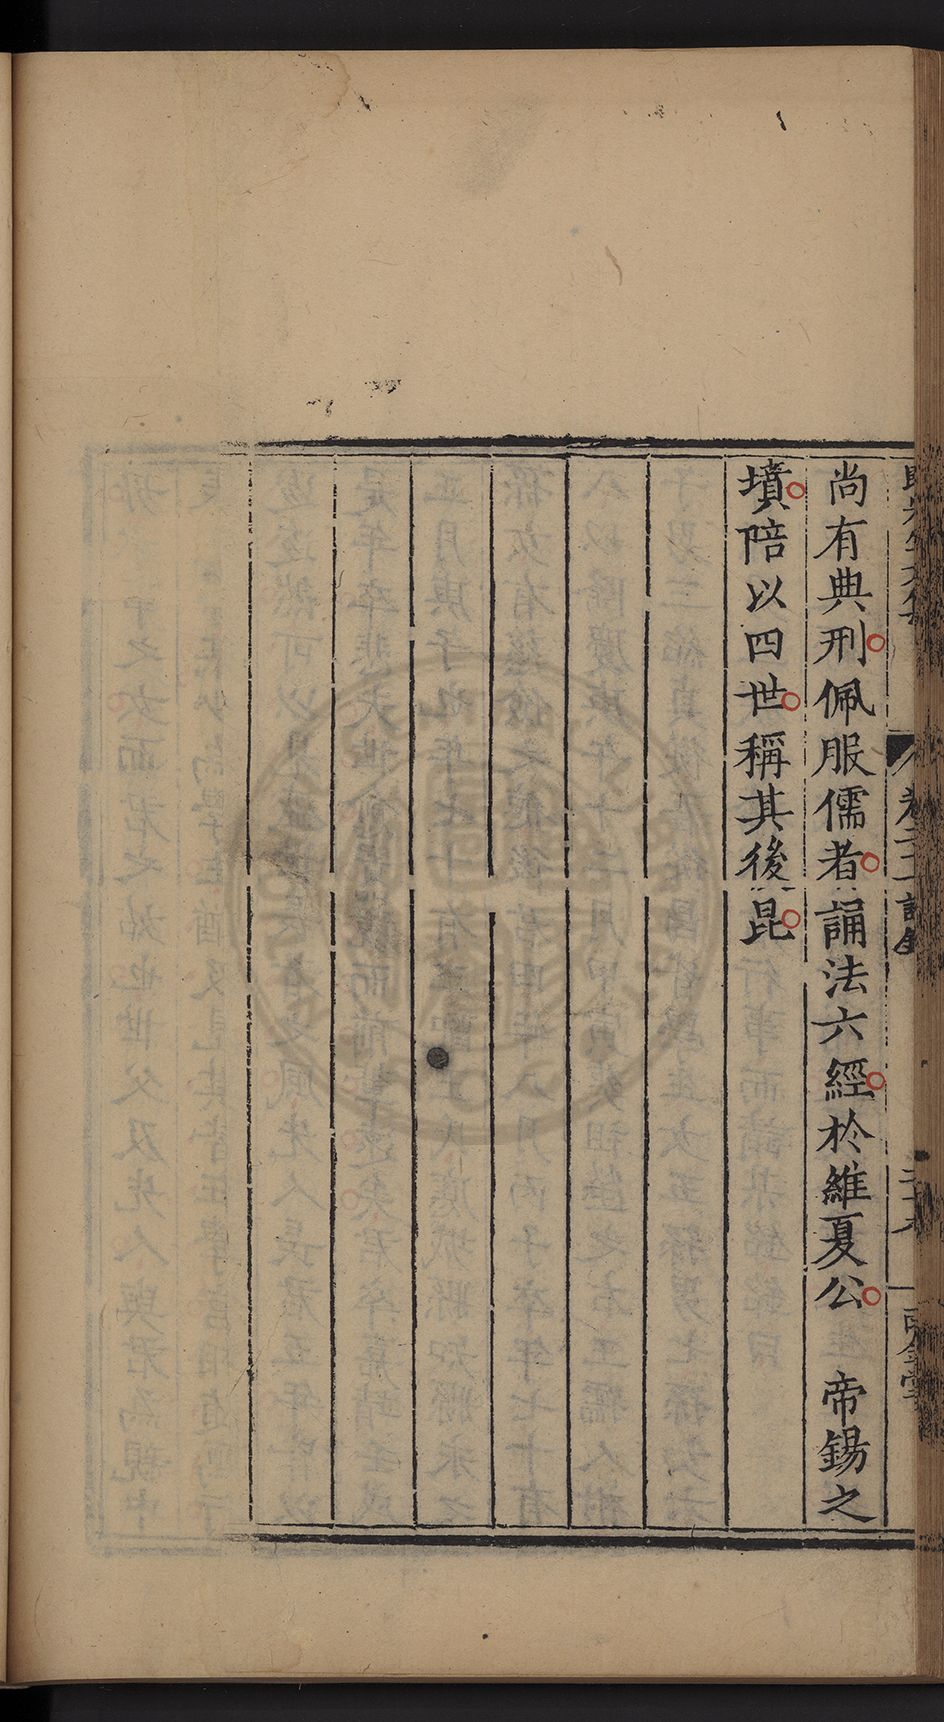 尚有典刑佩服儒者誦法六經於維夏公　帝錫之
墳陪以四世稱其後昆